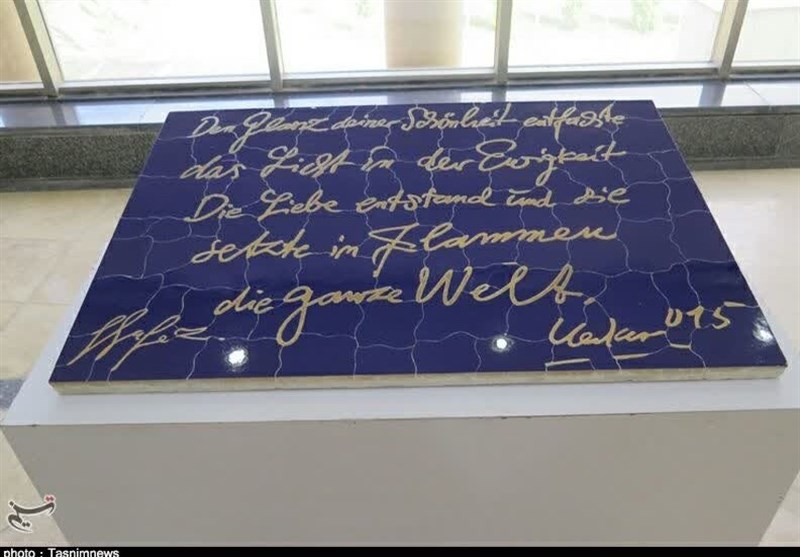 Den Glanz deiner Schönheit entfachte
das Licht in der Ewigkeit
Die Liebe entstand und sie
setzte in Flammen
die ganze Welt.
Hafez
015
photo : Tasnimnews